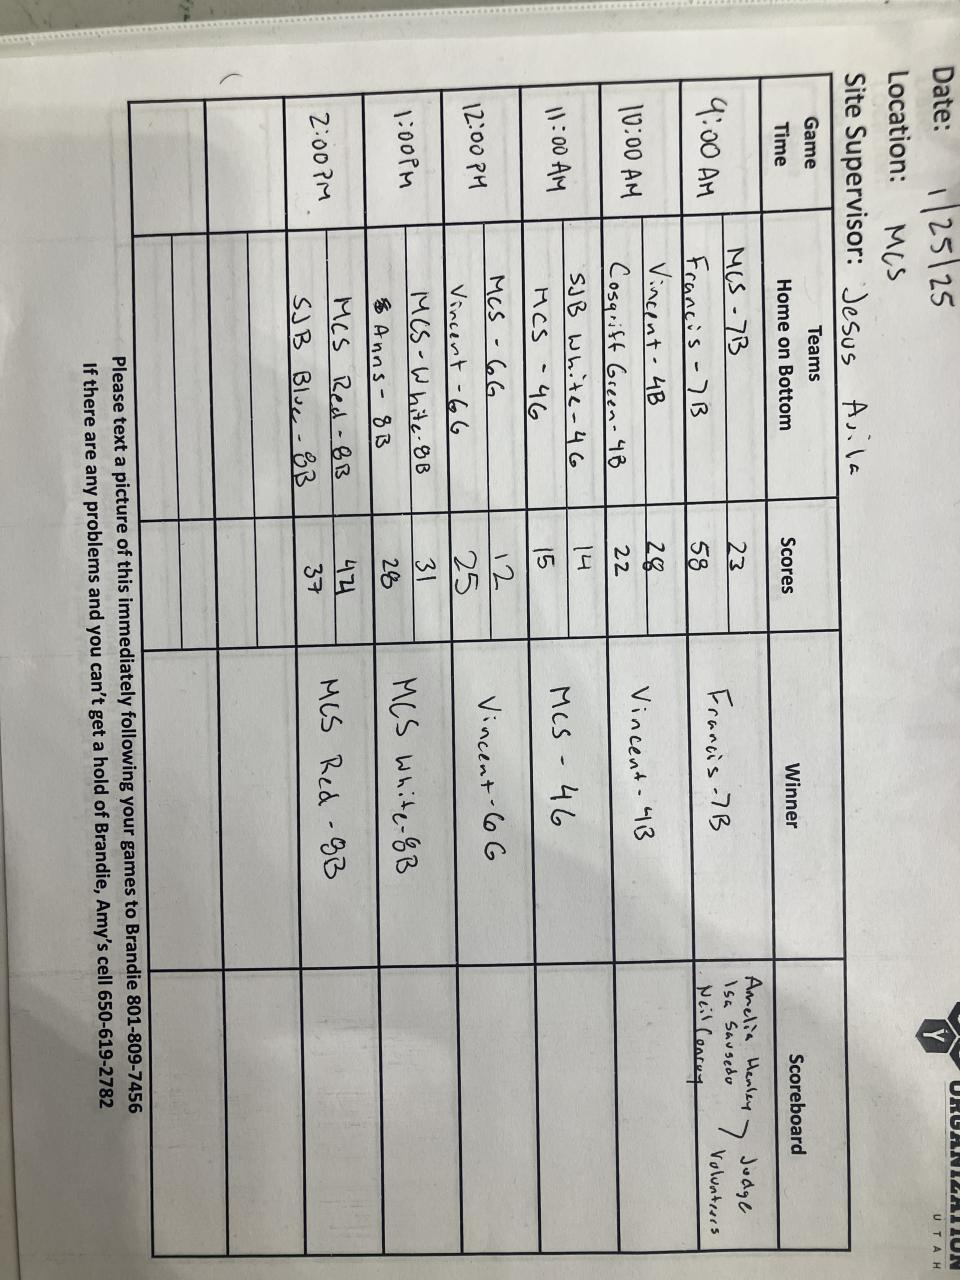 ORGANIZATION
UTAH
Y
Date: 1/25/25
Location: MCS
Site Supervisor: Jesus Avila
Game Time
Teams
Home on Bottom
Scores
Winner
Scoreboard
9:00 AM
MCS - 7B 23
Francis - 7B 58
Francis - 7B
Amelia Henley
Isa Sausedo
Neil Conroy
Judge
Volunteers
10:00 AM
Vincent - 4B 28
Cosgriff Green - 4B 22
Vincent - 4B
11:00 AM
SJB White - 4G 14
MCS - 4G 15
MCS - 4G
12:00 PM
MCS - 6G 12
Vincent - 6G 25
Vincent - 6G
1:00 PM
MCS - White - 8B 31
Anns - 8B 28
MCS White - 8B
2:00 PM
MCS Red - 8B 42
SJB Blue - 8B 37
MCS Red - 8B
Please text a picture of this immediately following your games to Brandie 801-809-7456
If there are any problems and you can't get a hold of Brandie, Amy's cell 650-619-2782